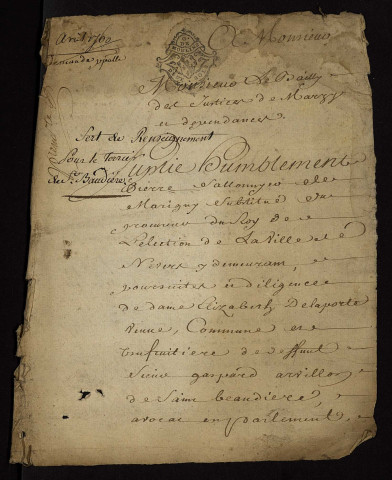 Avril 1760
demande ppalle
A Monsieur
Monsieur Le Bailly
des Justices de Marzy
et dependances
Sert de Renseignement
Pour le terrier
de St. Baudière
Suplie humblement
Pierre
Marigny Substitud du
procureur du Roy de
L'Election de La Ville et é
Nevers y demeurant,
poursuites et diligence
de dame Elizabeth Delaporte
veuve, Commune et
usufruitiere de deffunt
Sieur gaspard arvillon
de Saint beaudiere,
avocat en parlement,